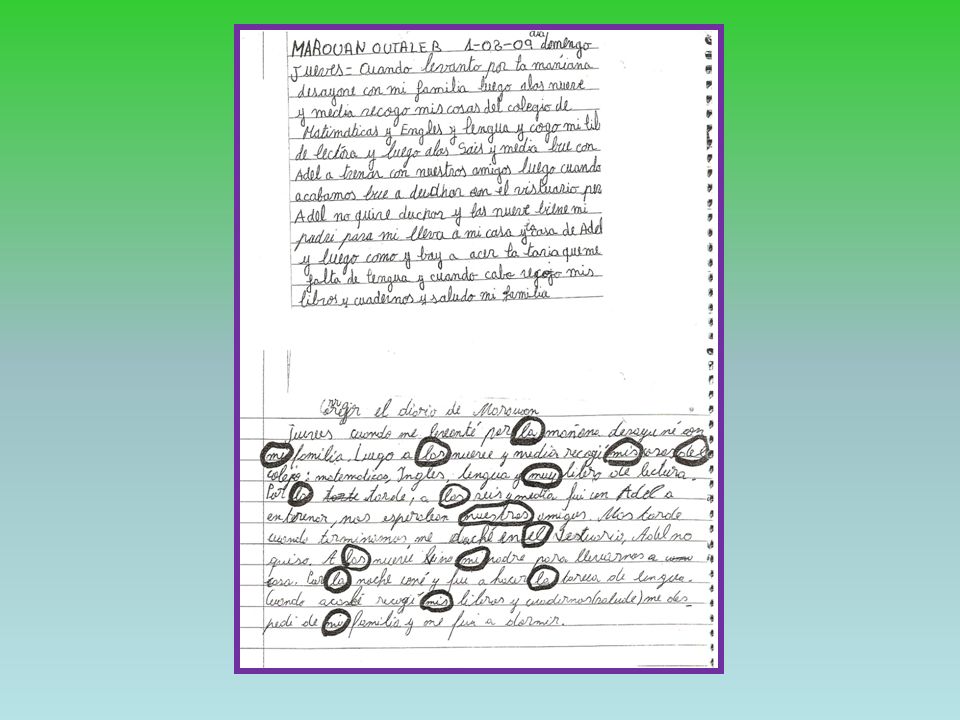 dia
MAROUAN OUTALEB 1-03-09 domengo
Jueves= Cuando levanto por la mañana
desayone con mi familia luego alas nueve
y media recogo mis cosas del colegio de
Matimaticas y Engles y lengua y cogo mi lib
de lectóra y luego alas Sais y media bue con
Adel a trenar con nuestros amigos luego cuando
acabamos bue a deuchar con el vistuario pero
Adel no quire duchar y las nueve biene mi
padri para mi lleva a mi casa y la casa de Adel
y luego como y bay a acer la taria que me
falta de lengua y cuando cabo recojo mis
libros y cuadernos y saludo mi familia
Corregir el diario de Marouan
Jueves cuando me levanté por la mañana desayuné con
mi familia. Luego a las nueve y media recogí mis cosas del
colejio: matematicas, Ingles, lengua y muy libro de lectura.
Por la tarde, a las seis y media fui con Adel a
entrenar, nos esperaban nuestros amigos. Mas tarde
cuando terminamos me duché en el Vestuario, Adel no
quiso. A las nueve vino mi padre para llevarnos a
casa. Por la noche cené y fui a hacer la tarea de lengua.
Cuando acabé recogí mis libros y cuadernos (salude) me des_
pedi de mi familia y me fui a dormir.